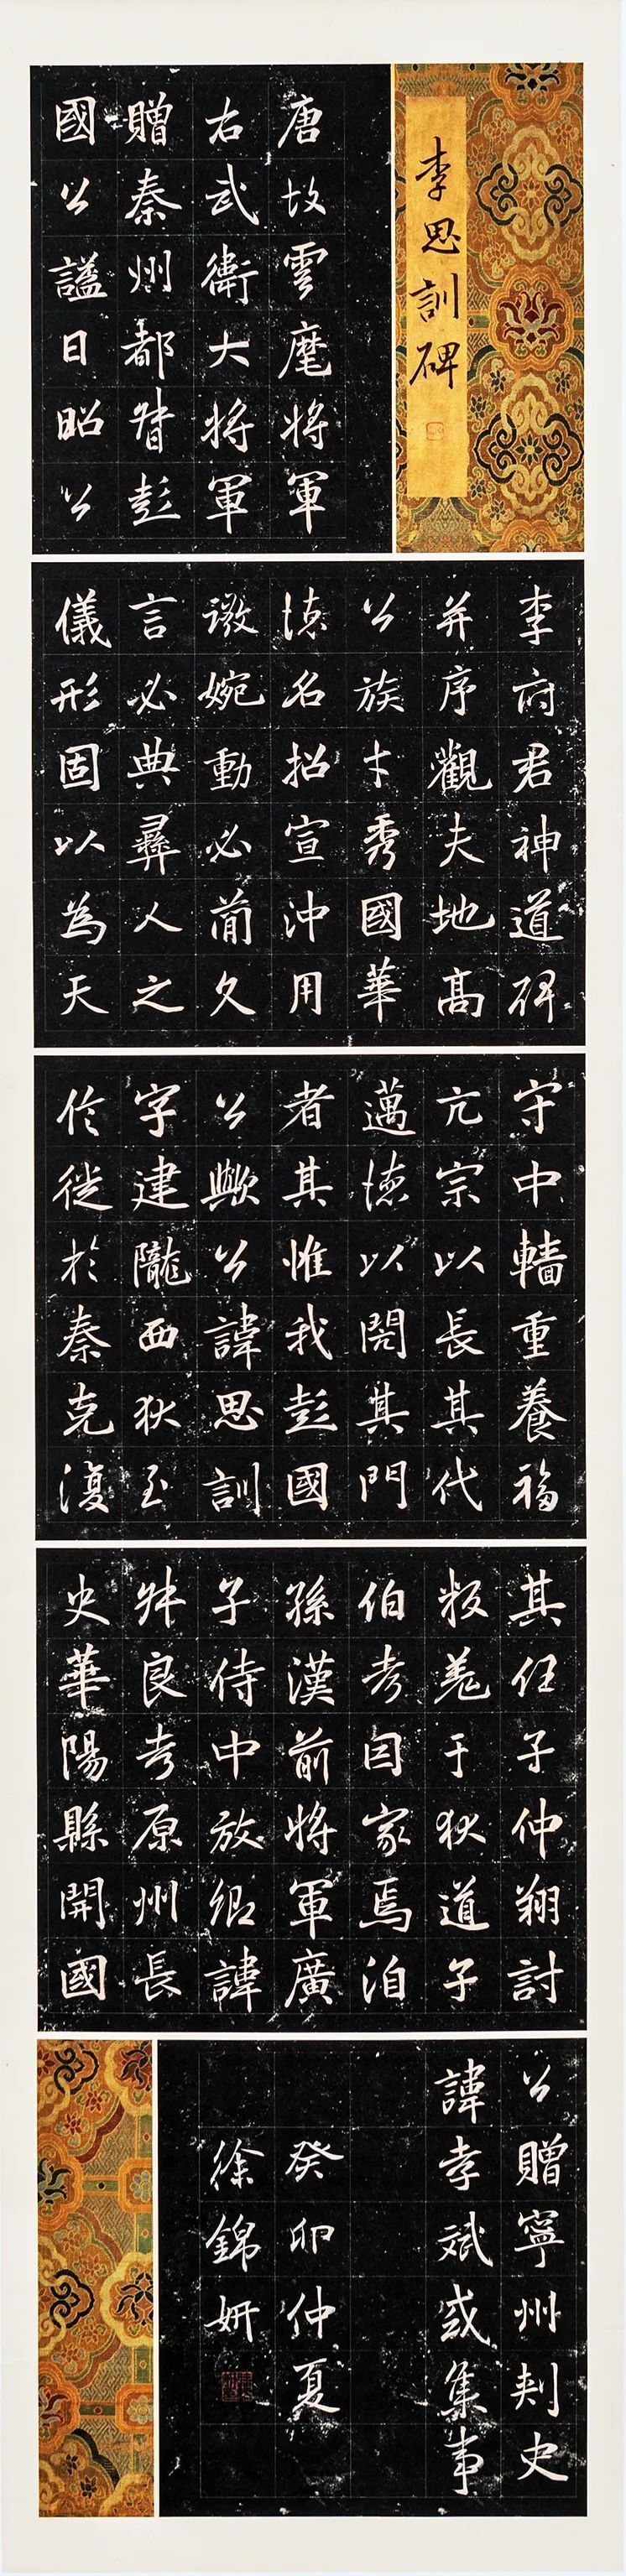 李思訓碑
唐故雲麾將軍
右武衛大將軍
贈秦州都督彭
國公謚曰昭公
李府君神道碑
并序觀夫地高
公族才秀國華
德名招宣沖用
微婉動必簡久
言必典彝人之
儀形固以為天
守中轖重養福
亢宗以長其代
邁德以閎其門
者其惟我彭國
公歟公諱思訓
字建隴西狄至
信徙於秦克復
其任子仲翔討
叛羌于狄道子
伯考因家焉洎
孫漢前將軍廣
子侍中放卿諱
叔良考原州長
史華陽縣開國
公贈寧州刺史
諱孝斌或集事
癸卯仲夏
徐錦妍